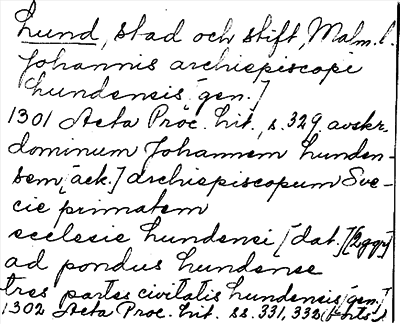 Lund, stad och stift, Malm. l.
Johannis archiepiscopi
Lundensis, [gen.]
1301 Acta Proc. Lit., s. 329 avskr.
dominum Johannem Lunden-
sem [ack.] archiepiscopum Sve-
cie primatem
ecclesie Lundensi [dat.] [2 ggr]
ad pondus Lundense
tres partes civitatis Lundensis [gen.]
1302 Acta Proc. Lit. ss. 331, 332